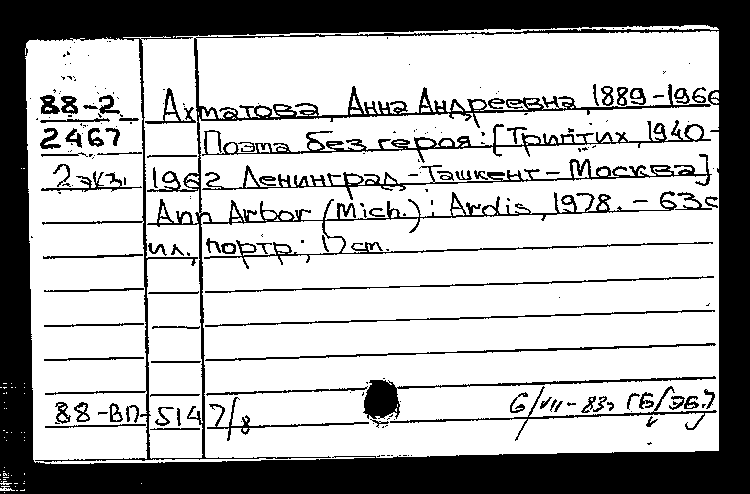 88-2 Ахматова, Анна Андреевна, 1889-1966
2467 Поэма без героя: [Триптих, 1940-
2 экз. 1962 Ленинград,-Ташкент-Москва]
Ann Arbor (Mich.): Ardis, 1978. - 63с
ил., портр; 17 cm.
88-ВП-5147/8 6/VII-83г (ГБ/ЭВ.)